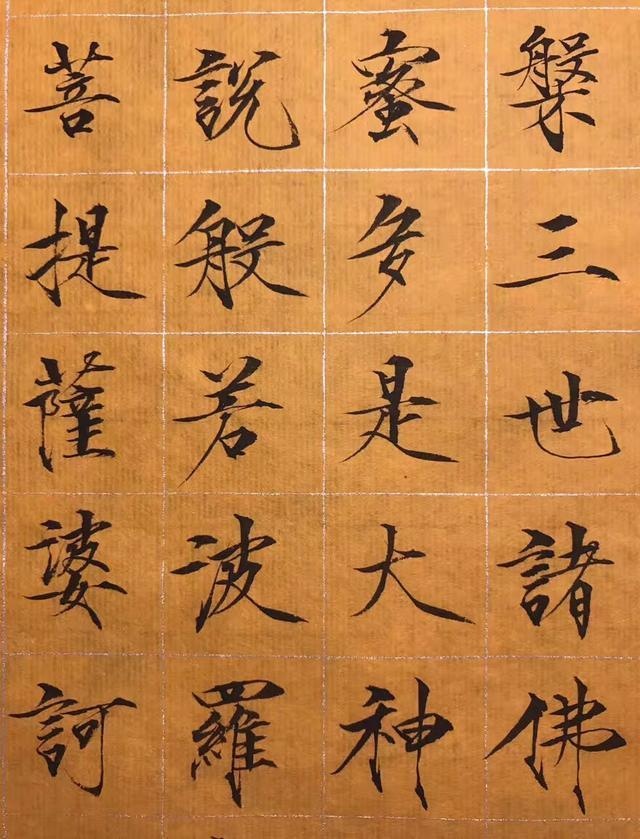 槃三世諸佛
蜜多是大神
說般若波羅
菩提薩婆訶